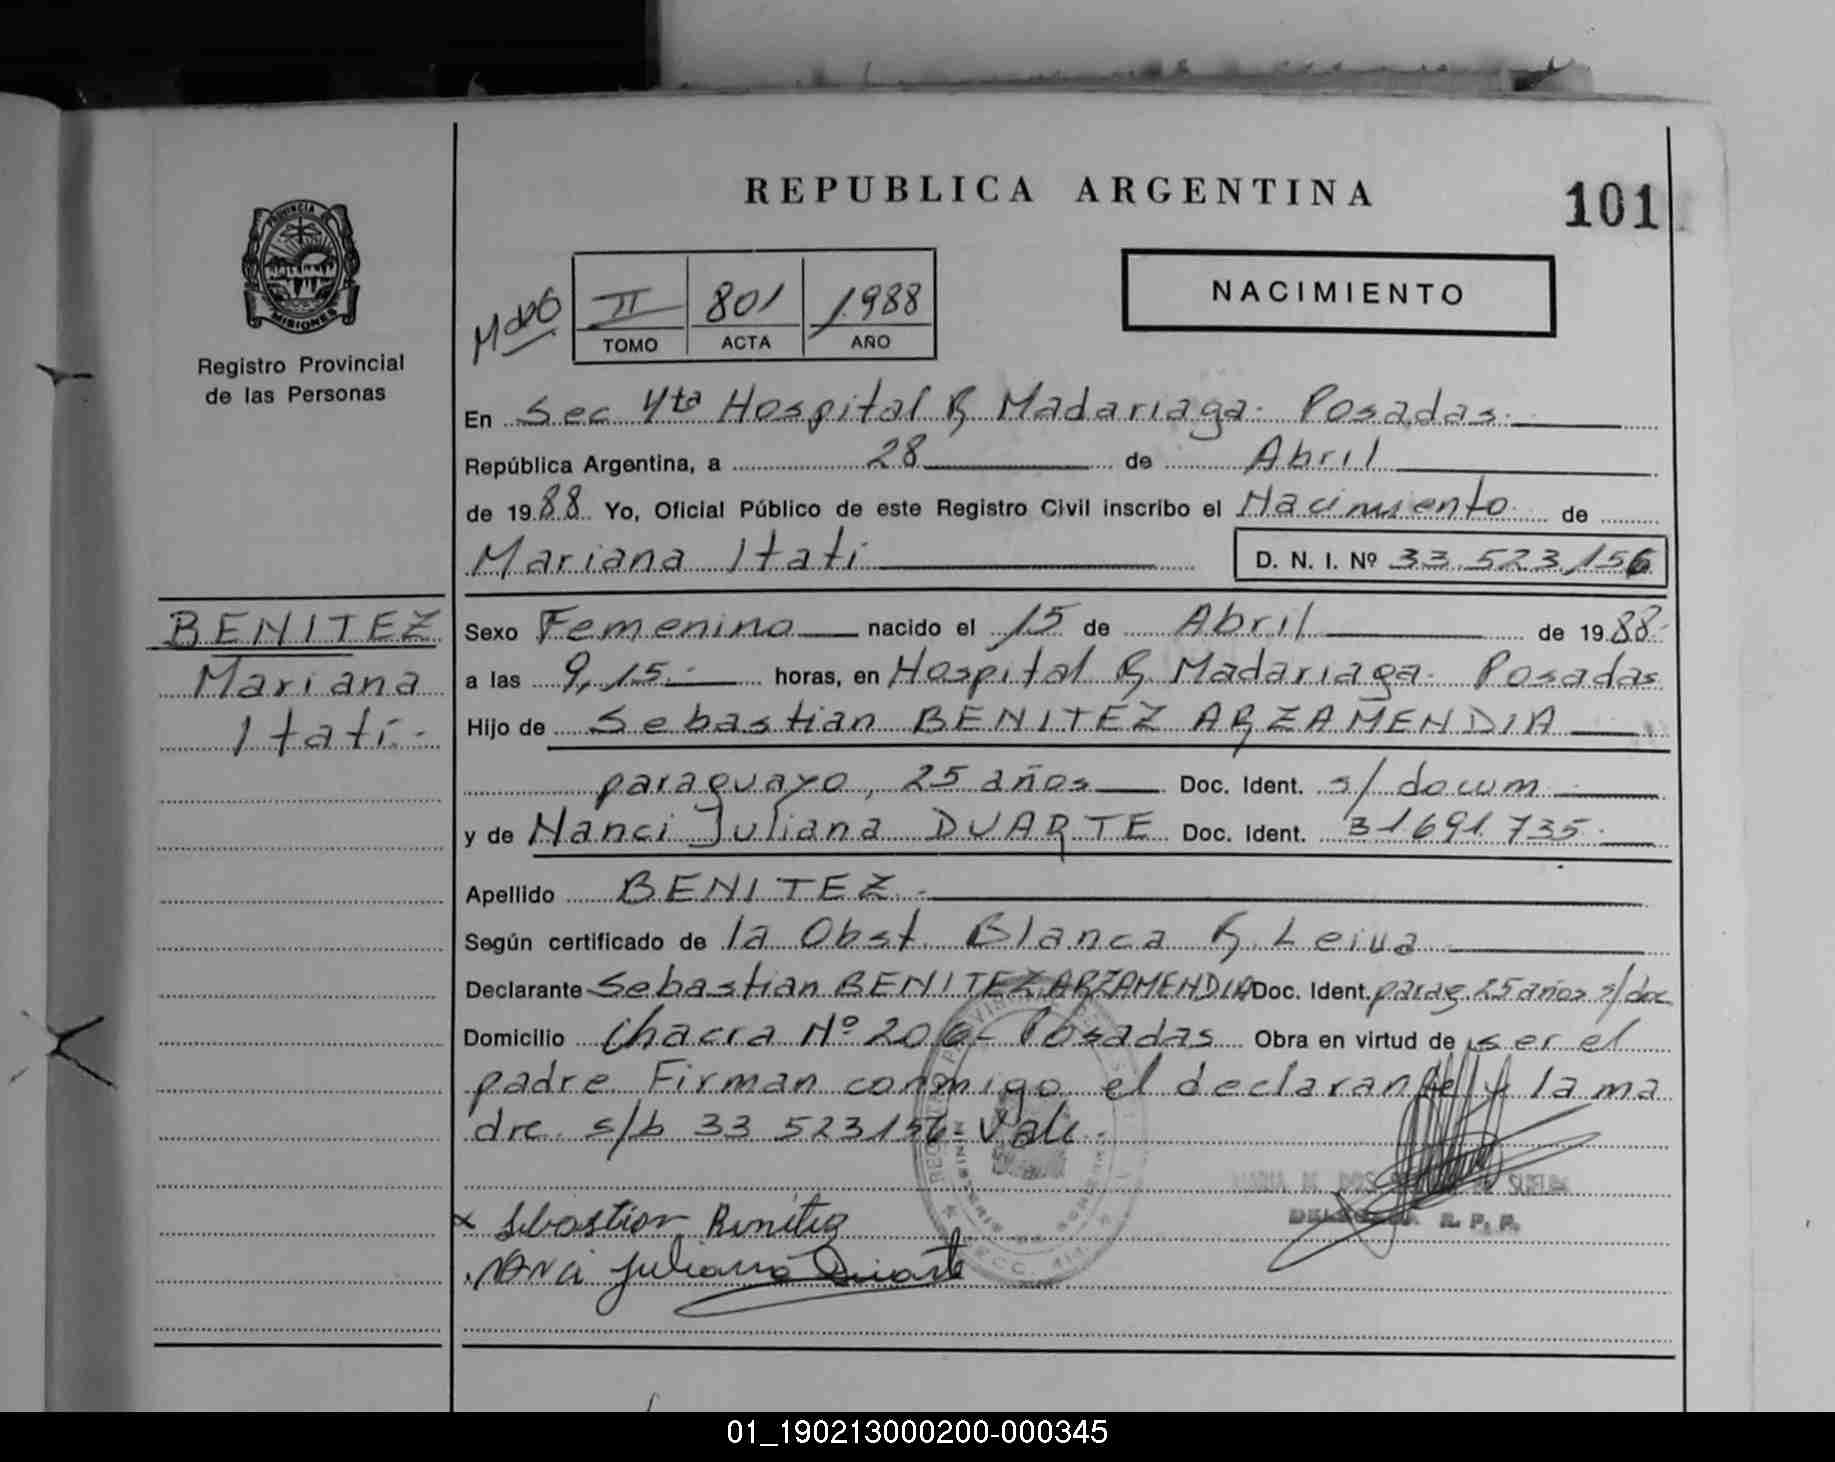 REPUBLICA ARGENTINA
101
PROVINCIA DE
MISIONES
Registro Provincial
de las Personas
II 801 1988
TOMO ACTA AÑO
NACIMIENTO
En Sec 4ta Hospital R Madariaga - Posadas
República Argentina, a 28 de Abril
de 1988 Yo, Oficial Público de este Registro Civil inscribo el Nacimiento de
Mariana Itatí D. N. I. Nº 33 523 156
BENITEZ
Mariana
Itatí.-
Sexo Femenino nacido el 15 de Abril de 1988.
a las 9,15.- horas, en Hospital R Madariaga - Posadas
Hijo de Sebastian BENITEZ ARZAMENDIA
paraguayo, 25 años Doc. Ident. s/ docum
y de Nanci Juliana DUARTE Doc. Ident. 31691.735.
Apellido BENITEZ.-
Según certificado de la Obst. Blanca R. Leiva
Declarante Sebastian BENITEZ ARZAMENDIA Doc. Ident. parag. 25 años s/doc
Domicilio Chacra Nº 206- Posadas Obra en virtud de ser el
padre Firman conmigo el declarante y la ma
dre. s/b 33 523156 Vale.-
x Sebastian Benitez
Nanci Juliana Duarte
R. P. P.
01_190213000200-000345